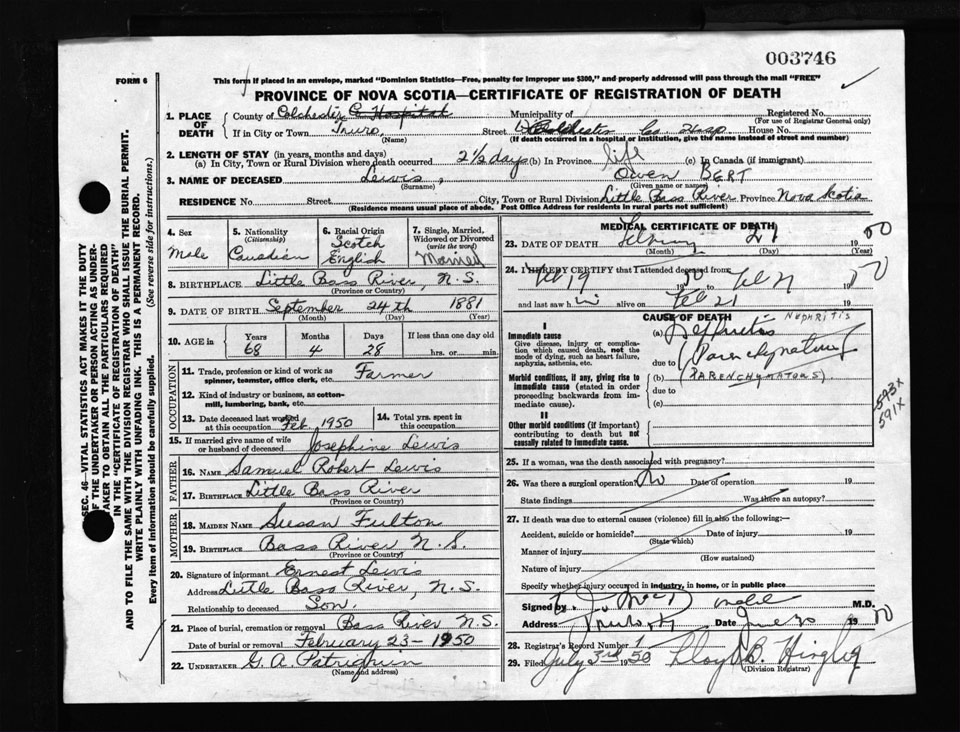 003746
FORM 6
This form if placed in an envelope, marked "Dominion Statistics—Free, penalty for improper use $300," and properly addressed will pass through the mail "FREE"
PROVINCE OF NOVA SCOTIA—CERTIFICATE OF REGISTRATION OF DEATH
1. PLACE OF DEATH
County of Colchester C. Hospital
Municipality of
Registered No.
(For use of Registrar General only)
If in City or Town Truro,
(Name)
Street Colchester Co. Hosp House No.
(If death occurred in a hospital or institution, give the name instead of street and number)
2. LENGTH OF STAY (in years, months and days)
(a) In City, Town or Rural Division where death occurred 2 1/2 days (b) In Province life (c) In Canada (if immigrant)
3. NAME OF DECEASED Lewis, Owen BERT
(Surname) (Given name or names)
RESIDENCE No. Street City, Town or Rural Division Little Bass River Province Nova Scotia
(Residence means usual place of abode. Post Office Address for residents in rural parts not sufficient)
4. Sex
Male
5. Nationality
(Citizenship)
Canadian
6. Racial Origin
Scotch
English
7. Single, Married, Widowed or Divorced
(write the word)
Married
8. BIRTHPLACE Little Bass River, N.S.
(Province or Country)
9. DATE OF BIRTH September 24th 1881
(Month) (Day) (Year)
10. AGE in Years Months Days If less than one day old
68 4 28 hrs. or min.
OCCUPATION
11. Trade, profession or kind of work as spinner, teamster, office clerk, etc. Farmer
12. Kind of industry or business, as cotton-mill, lumbering, bank, etc.
13. Date deceased last worked at this occupation Feb. 1950
14. Total yrs. spent in this occupation
15. If married give name of wife or husband of deceased Josephine Lewis
FATHER
16. NAME Samuel Robert Lewis
17. BIRTHPLACE Little Bass River
(Province or Country)
MOTHER
18. MAIDEN NAME Susan Fulton
19. BIRTHPLACE Bass River N.S.
(Province or Country)
20. Signature of informant Ernest Lewis
Address Little Bass River, N.S.
Relationship to deceased Son.
21. Place of burial, cremation or removal Bass River N.S.
Date of burial or removal February 23-1950
22. UNDERTAKER G. A.
(Name and address)
MEDICAL CERTIFICATE OF DEATH
23. DATE OF DEATH February 21 1950
(Month) (Day) (Year)
24. I HEREBY CERTIFY that I attended deceased from
Feb 19 1950 to Feb 21 1950
and last saw him alive on Feb 21 19
CAUSE OF DEATH
I
Immediate cause
Give disease, injury or complication which caused death, not the mode of dying, such as heart failure, asphyxia, asthenia, etc.
(a) Nephritis NEPHRITIS
due to
Morbid conditions, if any, giving rise to immediate cause (stated in order proceeding backwards from immediate cause).
(b) (PARENCHYMATOUS)
due to
(c)
II
Other morbid conditions (if important) contributing to death but not causally related to immediate cause.
593X
591X
25. If a woman, was the death associated with pregnancy?
26. Was there a surgical operation? No Date of operation 19
State findings Was there an autopsy?
27. If death was due to external causes (violence) fill in also the following:—
Accident, suicide or homicide? Date of injury 19
(State which)
Manner of injury
(How sustained)
Nature of injury
Specify whether injury occurred in industry, in home, or in public place
Signed by M.D.
Address Date 19
28. Registrar's Record Number 1
29. Filed July 3rd 1950 Lloyd B.
(Division Registrar)
SEC. 46—VITAL STATISTICS ACT MAKES IT THE DUTY OF THE UNDERTAKER OR PERSON ACTING AS UNDERTAKER TO OBTAIN ALL THE PARTICULARS REQUIRED IN THE "CERTIFICATE OF REGISTRATION OF DEATH"
AND TO FILE THE SAME WITH THE DIVISION REGISTRAR WHO SHALL ISSUE THE BURIAL PERMIT.
WRITE PLAINLY WITH UNFADING INK. THIS IS A PERMANENT RECORD.
Every item of information should be carefully supplied. (See reverse side for instructions.)